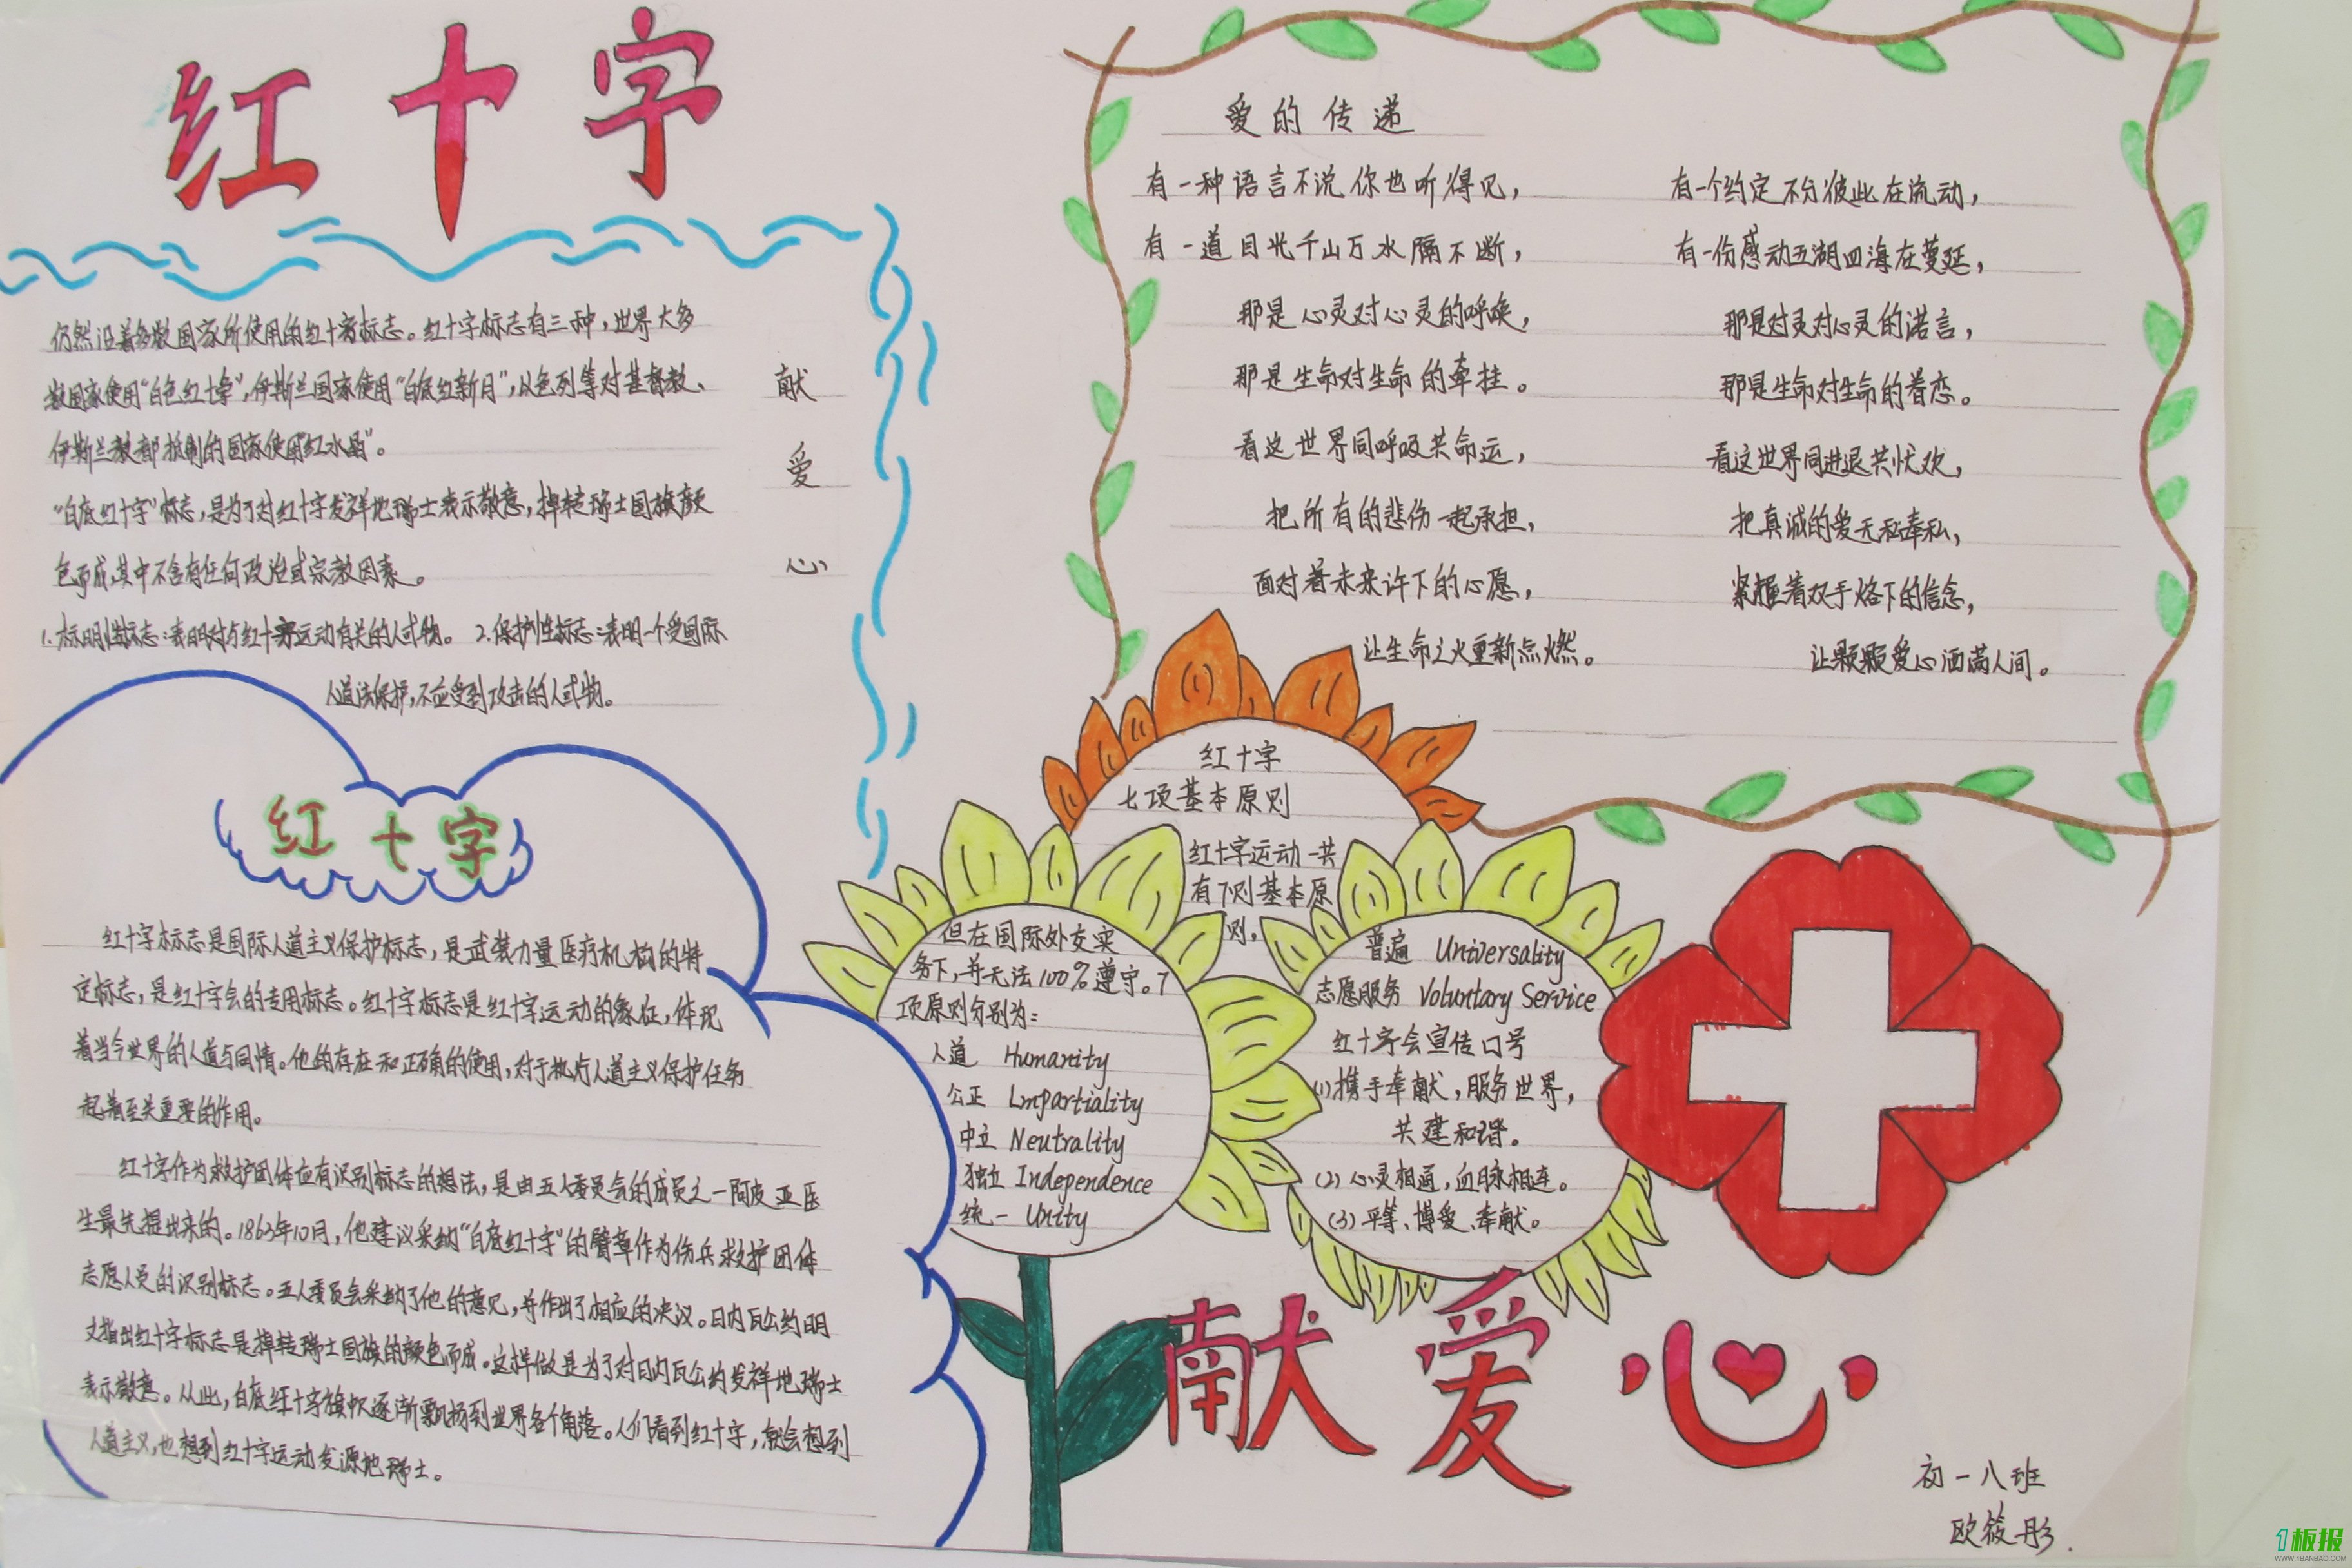 红十字
仍然沿着多数国家所使用的红十字标志。红十字标志有三种，世界大多
数国家使用“白色红十字”，伊斯兰国家使用“白底红新月”，以色列等对基督教、
伊斯兰教都抵制的国家使用“红水晶”。
“白底红十字”标志，是为了对红十字发祥地瑞士表示敬意，掉转瑞士国旗颜
色而成，其中不含有任何政治或宗教因素。
1.标明性标志：表明对与红十字运动有关的人或物。 2.保护性标志：表明一个受国际
人道法保护，不应受到攻击的人或物。
献
爱
心
红十字
红十字标志是国际人道主义保护标志，是武装力量医疗机构的特
定标志，是红十字会的专用标志。红十字标志是红十字运动的象征，体现
着当今世界的人道与同情。他的存在和正确的使用，对于执行人道主义保护任务
起着至关重要的作用。
红十字作为救护团体应有识别标志的想法，是由五人委员会的成员之一阿皮亚医
生最先提出来的。1863年10月，他建议采纳“白底红十字”的臂章作为伤兵救护团体
志愿人员的识别标志。五人委员会采纳了他的意见，并作出了相应的决议。日内瓦公约明
文指出红十字标志是掉转瑞士国旗的颜色而成。这样做是为了对日内瓦公约发祥地瑞士
表示敬意。从此，白底红十字旗帜逐渐飘扬到世界各个角落。人们看到红十字，就会想到
人道主义，也想到红十字运动发源地瑞士。
爱的传递
有一种语言不说你也听得见，
有一道目光千山万水隔不断，
那是心灵对心灵的呼唤，
那是生命对生命的牵挂。
看这世界同呼吸共命运，
把所有的悲伤一起承担，
面对着未来许下的心愿，
让生命之火重新点燃。
有一个约定不分彼此在流动，
有一份感动五湖四海在蔓延，
那是对灵对心灵的诺言，
那是生命对生命的眷恋。
看这世界同进退共忧欢，
把真诚的爱无私奉私，
紧握着双手烙下的信念，
让颗颗爱心洒满人间。
红十字
七项基本原则
红十字运动一共
有7则基本原
则，
但在国际外交实
务下，并无法100%遵守。7
项原则分别为：
人道 Humanity
公正 Lmpartiality
中立 Neutrality
独立 Independence
统一 Unity
普遍 Universality
志愿服务 Voluntary Service
红十字会宣传口号
(1)携手奉献，服务世界，
共建和谐。
(2)心灵相通，血脉相连。
(3)平等、博爱、奉献。
献爱心
初一八班
欧筱彤.
1板报
WWW.1BANBAO.COM